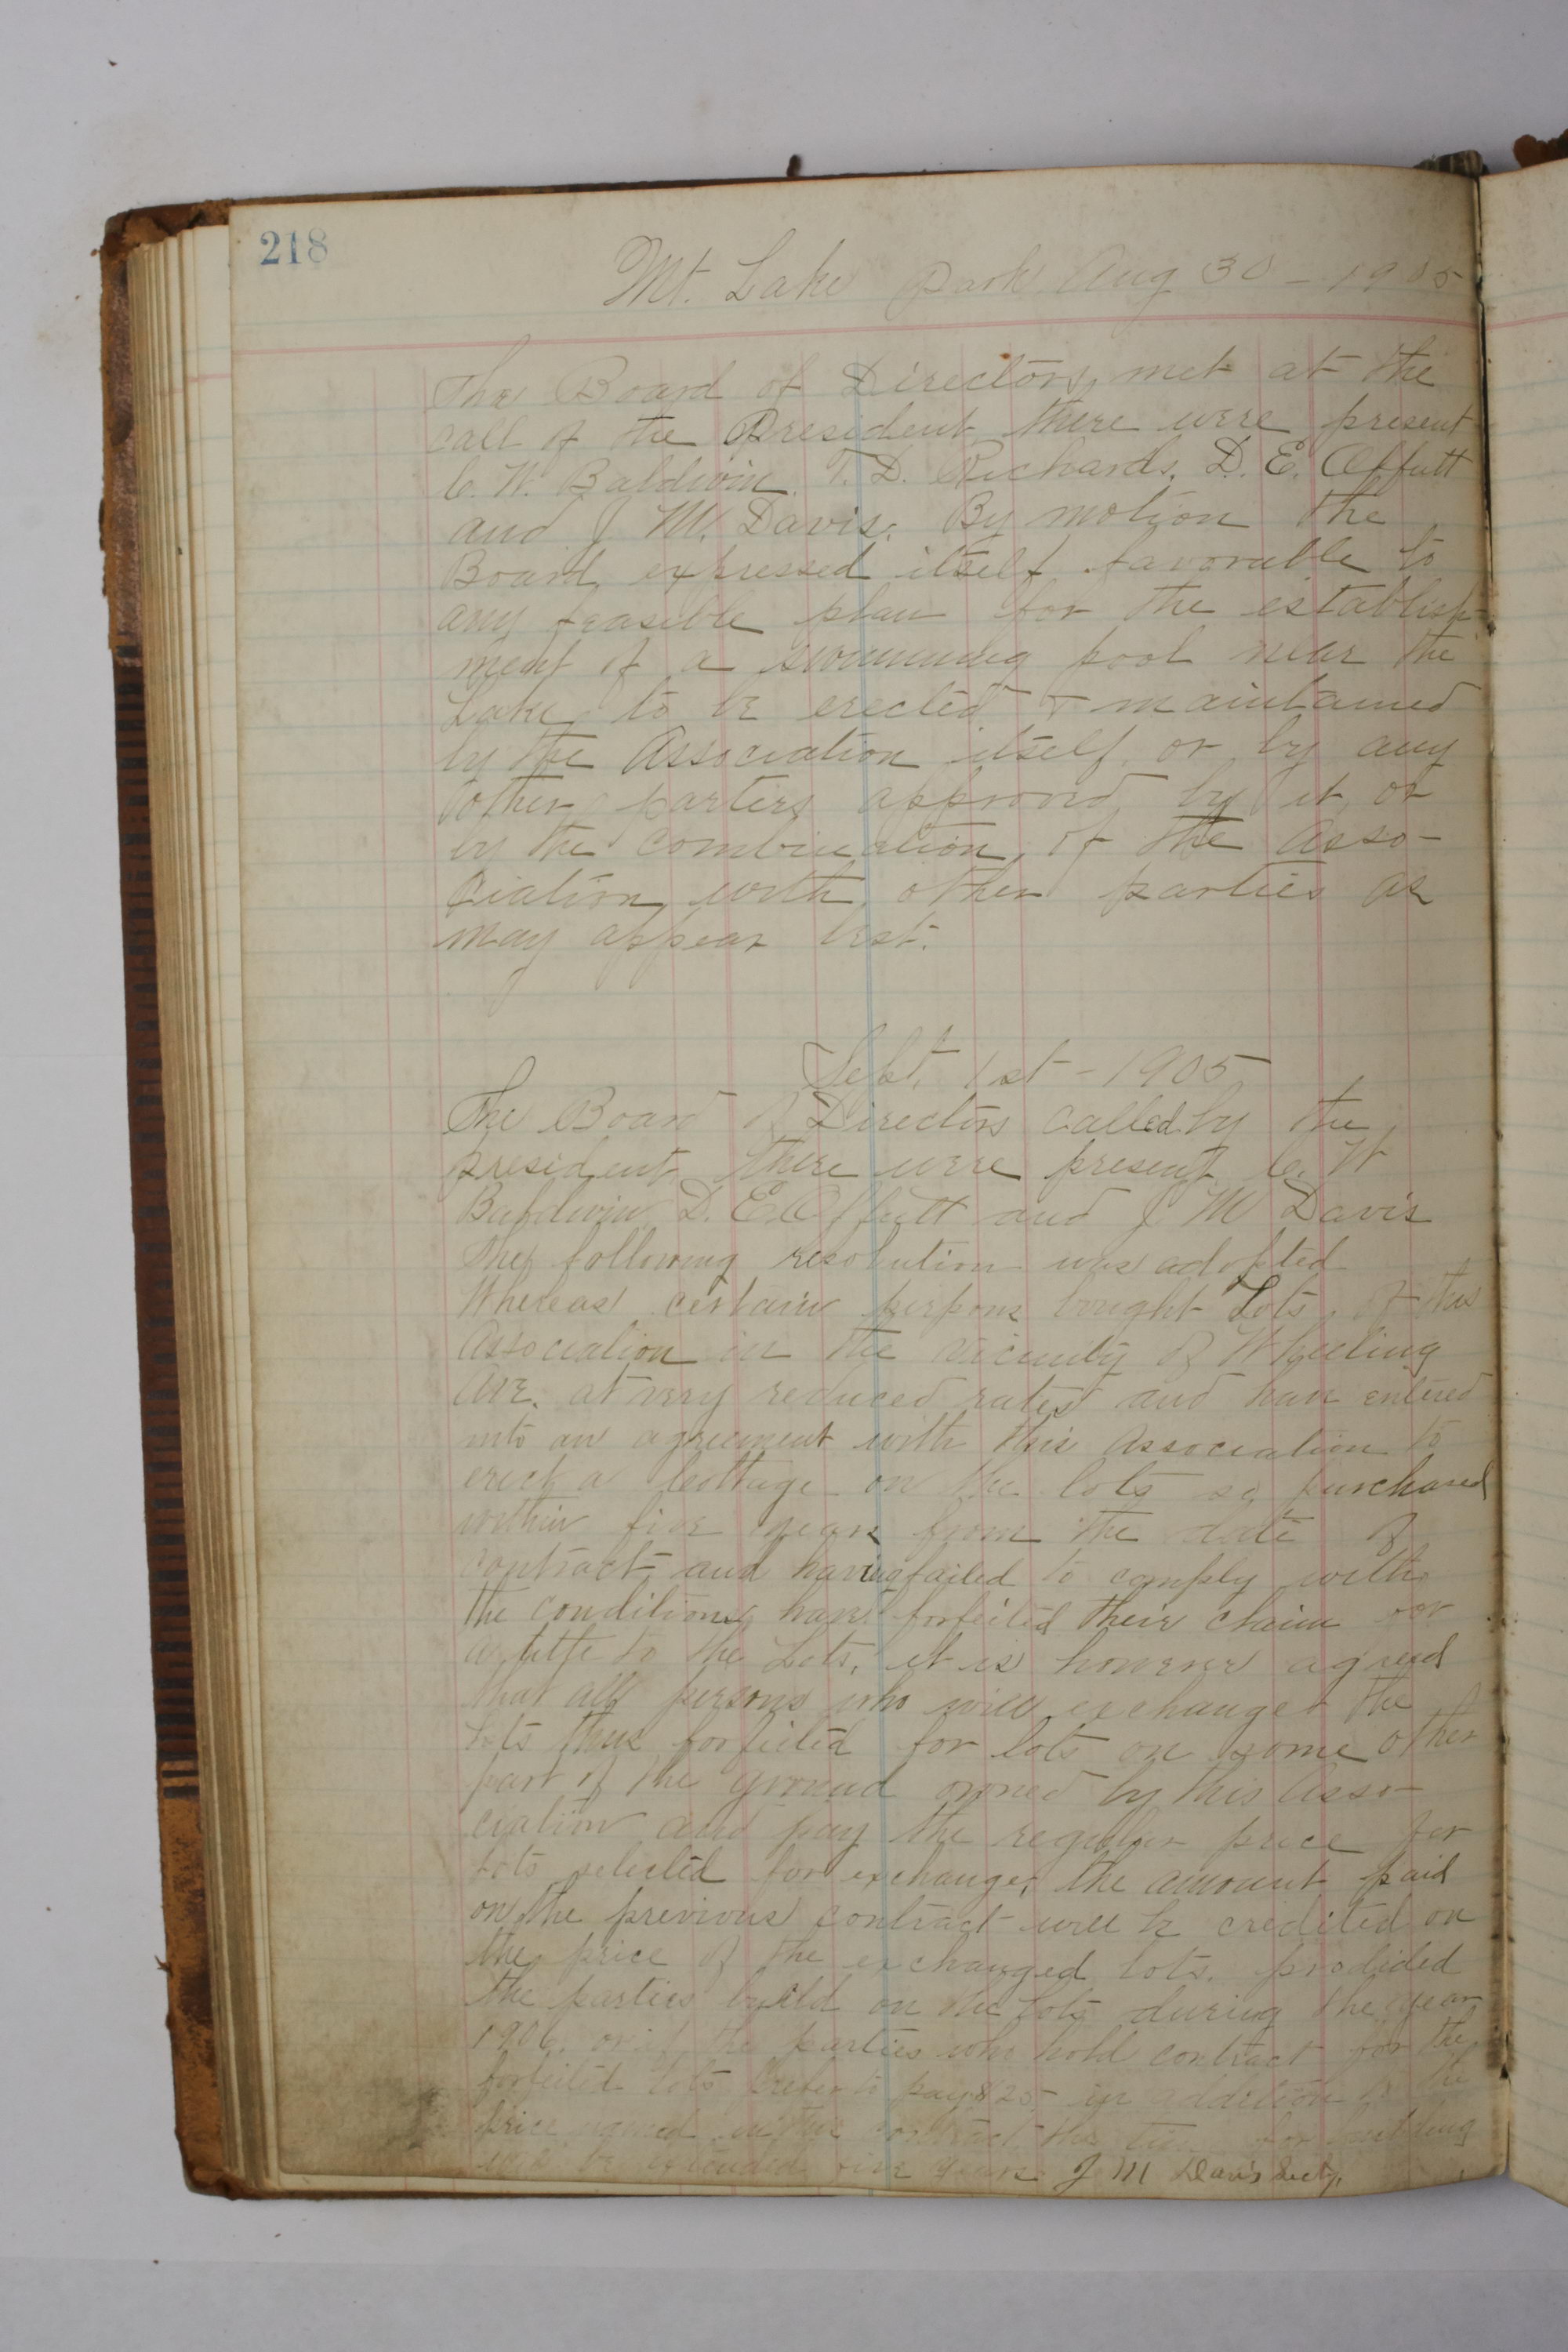 218
Mt. Lake Park Aug 30 - 1905
The Board of Directors, met at the
call of the President there were present
C. W. Baldwin. T. D. Richards. D. E. Offutt
and J M. Davis. By motion the
Board expressed itself favorable to
any feasible plan for the establish-
ment of a swimming pool near the
Lake to be erected & maintained
by the Association itself or by any
other parties approved by it, or
by the combination, of the Asso-
ciation with other parties as
may appear best.
Sept. 1st - 1905
The Board of Directors called by the
president there were present C. W
Baldwin D. E. Offutt and J M Davis
The following resolution was adopted
Whereas certain persons bought Lots, of this
Association in the vicinity of Wheeling
Ave. at very reduced rates and have entered
into an agreement with this Association to
erect a Cottage on the lots so purchased
within five years from the date of
contract and having failed to comply with
the conditions have forfeited their claim or
a title to the Lots, it is however agreed
that all persons who will exchange the
Lots thus forfeited for lots on some other
part of the ground owned by this Asso-
ciation and pay the regular price for
Lots selected for exchange, the amount paid
on the previous contract will be credited on
the price of the exchanged lots. provided
the parties build on the lots during the year
1906. or if the parties who hold contract for the
forfeited lots prefer to pay $25 in addition to the
price named in the contract the time for building
will be extended five years. J M Davis Secty.